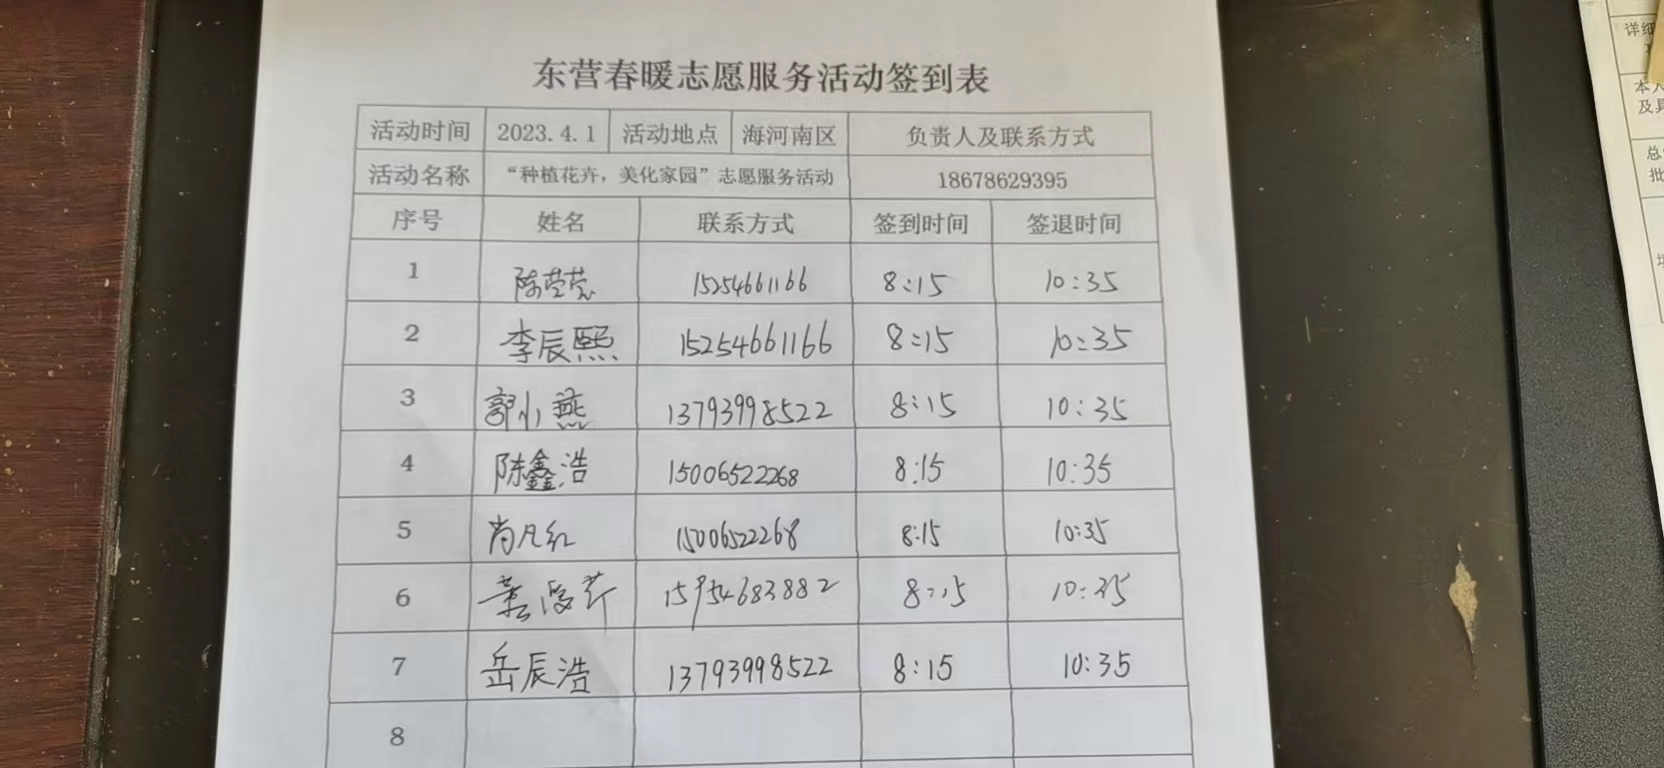 东营春暖志愿服务活动签到表
活动时间 2023.4.1 活动地点 海河南区 负责人及联系方式
活动名称 “种植花卉，美化家园”志愿服务活动 18678629395
序号 姓名 联系方式 签到时间 签退时间
1 陈莹莹 15254661166 8:15 10:35
2 李辰熙 15254661166 8:15 10:35
3 郭小燕 13793998522 8:15 10:35
4 陈鑫浩 15006522268 8:15 10:35
5 尚凡红 15006522268 8:15 10:35
6 15954683882 8:15 10:35
7 岳辰浩 13793998522 8:15 10:35
8
详细
本人
及具
总
批